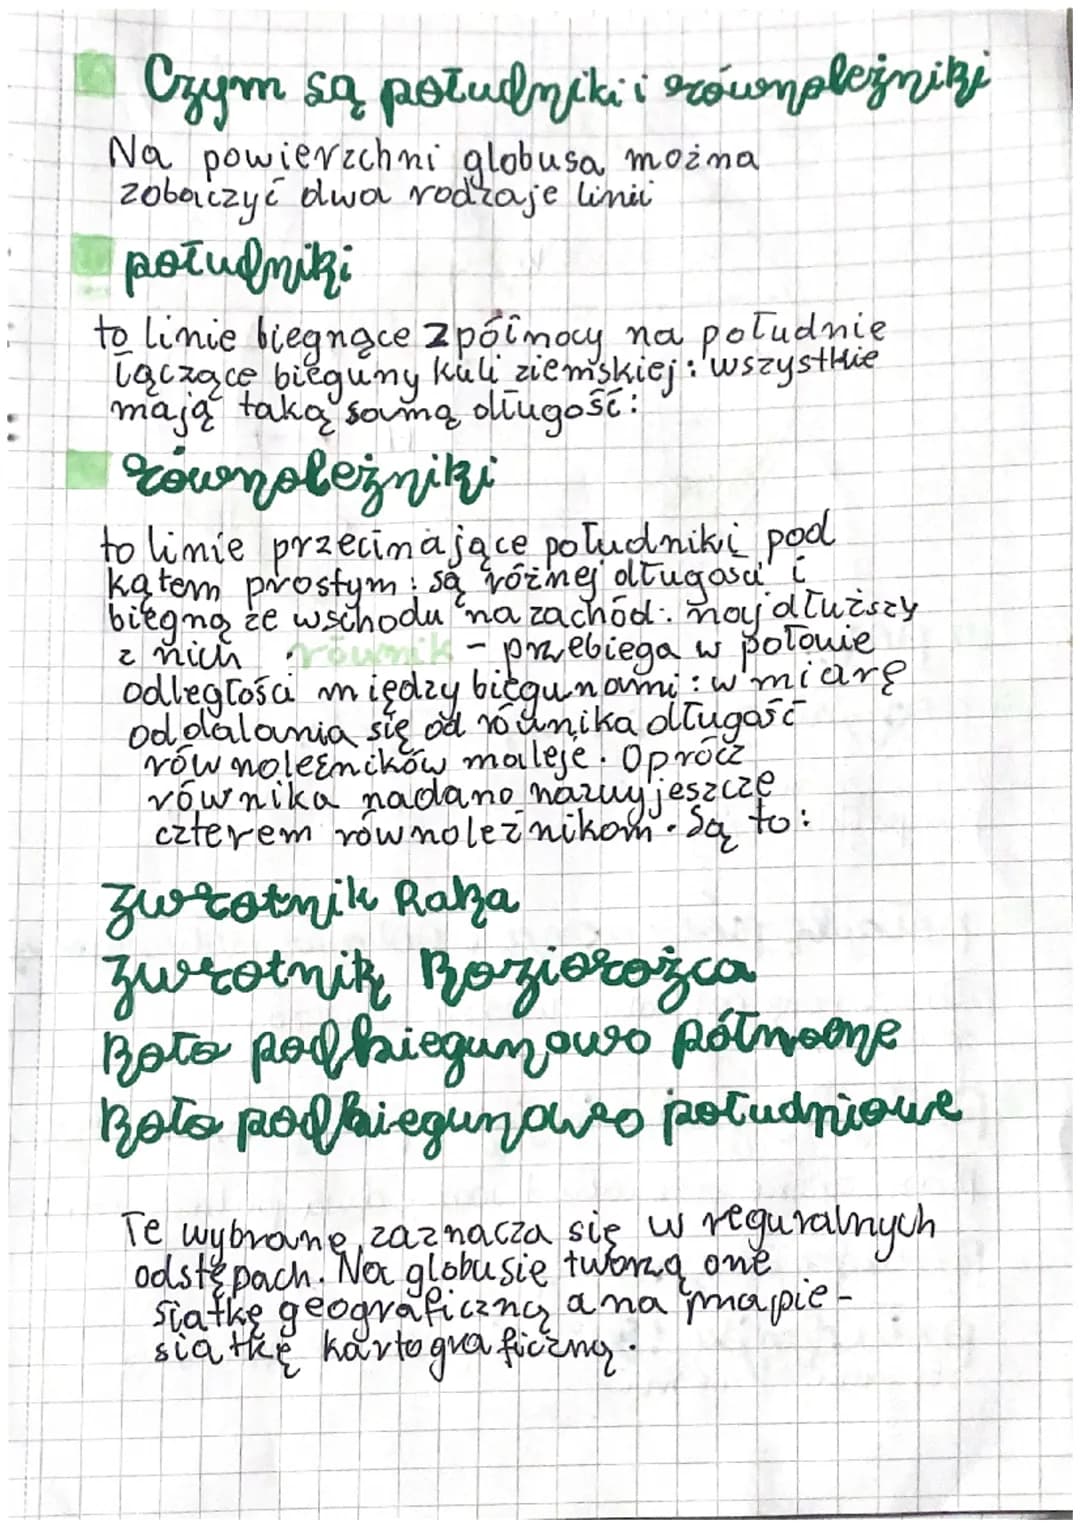 Czym są południki i równoleżniki
Na powierzchni globusa można
zobaczyć dwa rodzaje linii
południki
to linie biegnące z północy na południe
łączące bieguny kuli ziemskiej: wszystkie
mają taką samą długość:
równoleżniki
to linie przecinające południki pod
kątem prostym: są różnej długości i
biegną ze wschodu na zachód: najdłuższy
z nich równik - przebiega w połowie
odległości między biegunami: w miarę
oddalania się od równika długość
równoleżników maleje. Oprócz
równika nadano nazwy jeszcze
czterem równoleżnikom. Są to:
zwrotnik Raka
zwrotnik Koziorożca
Koło podbiegunowo północne
Koło podbiegunowo południowe
Te wybrane zaznacza się w reguralnych
odstępach. Na globusie tworzą one
siatkę geograficzną a na mapie -
siatkę kartograficzną.